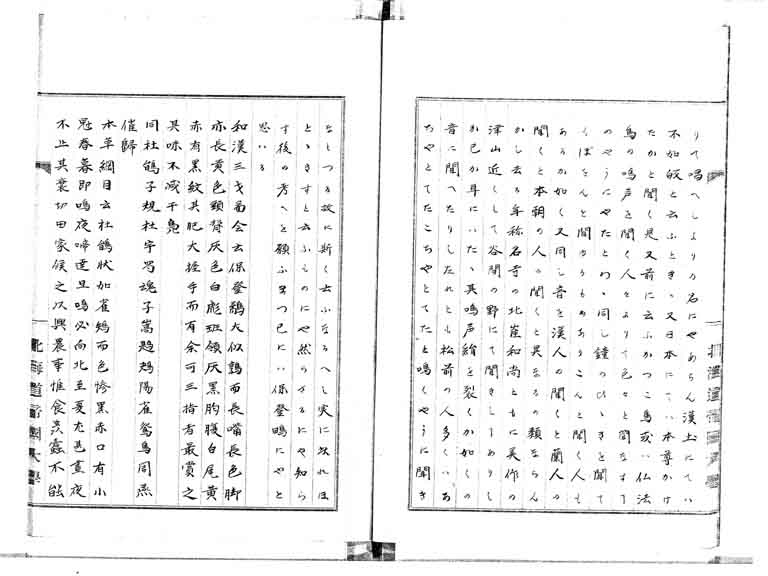 りて唱へしよりの名にやあらん漢土にてハ
不如皈と云ふときゝ又日本にてハ本尊かけ
たかと聞く是又前に云ふかつこ鳥或ハ仏法
鳥の鳴声を聞く人々により色々と聞なすも
のやうにやたとわゝ同し鐘のひゞきを聞て
くぼをんと聞かうもめありこんと聞く人も
あるか如く又同し音を漢人の聞くと蘭人の
聞くと本朝の人の聞くと異なるの類ならん
かし去る年称名寺の北崔和尚ともに美作の
津山近くして谷間の野にて聞きしことありし
か已か耳にハいたゝ其鳴声絹を裂くか如くの
音に聞へたりしたれとも松前の人多くハあ
ちやとてたこちやとてたと鳴くやうに聞き
なしつる故に斯く云ふなるへし実に故れほ
とゝきすと云ふものにや然らざるにや知ら
す後の考へを願ふまつ已にハ保登鴫にやと
思ハる
和漢三才圖会云保登鷸大似鶉而長嘴長色脚
亦長黄色頸脊灰色白彪斑領灰黒胸腹白尾黄
赤有黒紋其肥大握手而有余可三指者最賞之
其味不减于鳬
同杜鵑子規杜宇蜀魂子嶲鶗鴂陽雀鴛鳥同燕
催歸
本草綱目云杜鵑状如雀鷂而色惨黒赤口有小
冠春暮即鳴夜啼達旦鳴必向北至夏尤甚晝夜
不止其哀切田家候之以興農事惟食虫蠹不能
北海道帝国大學